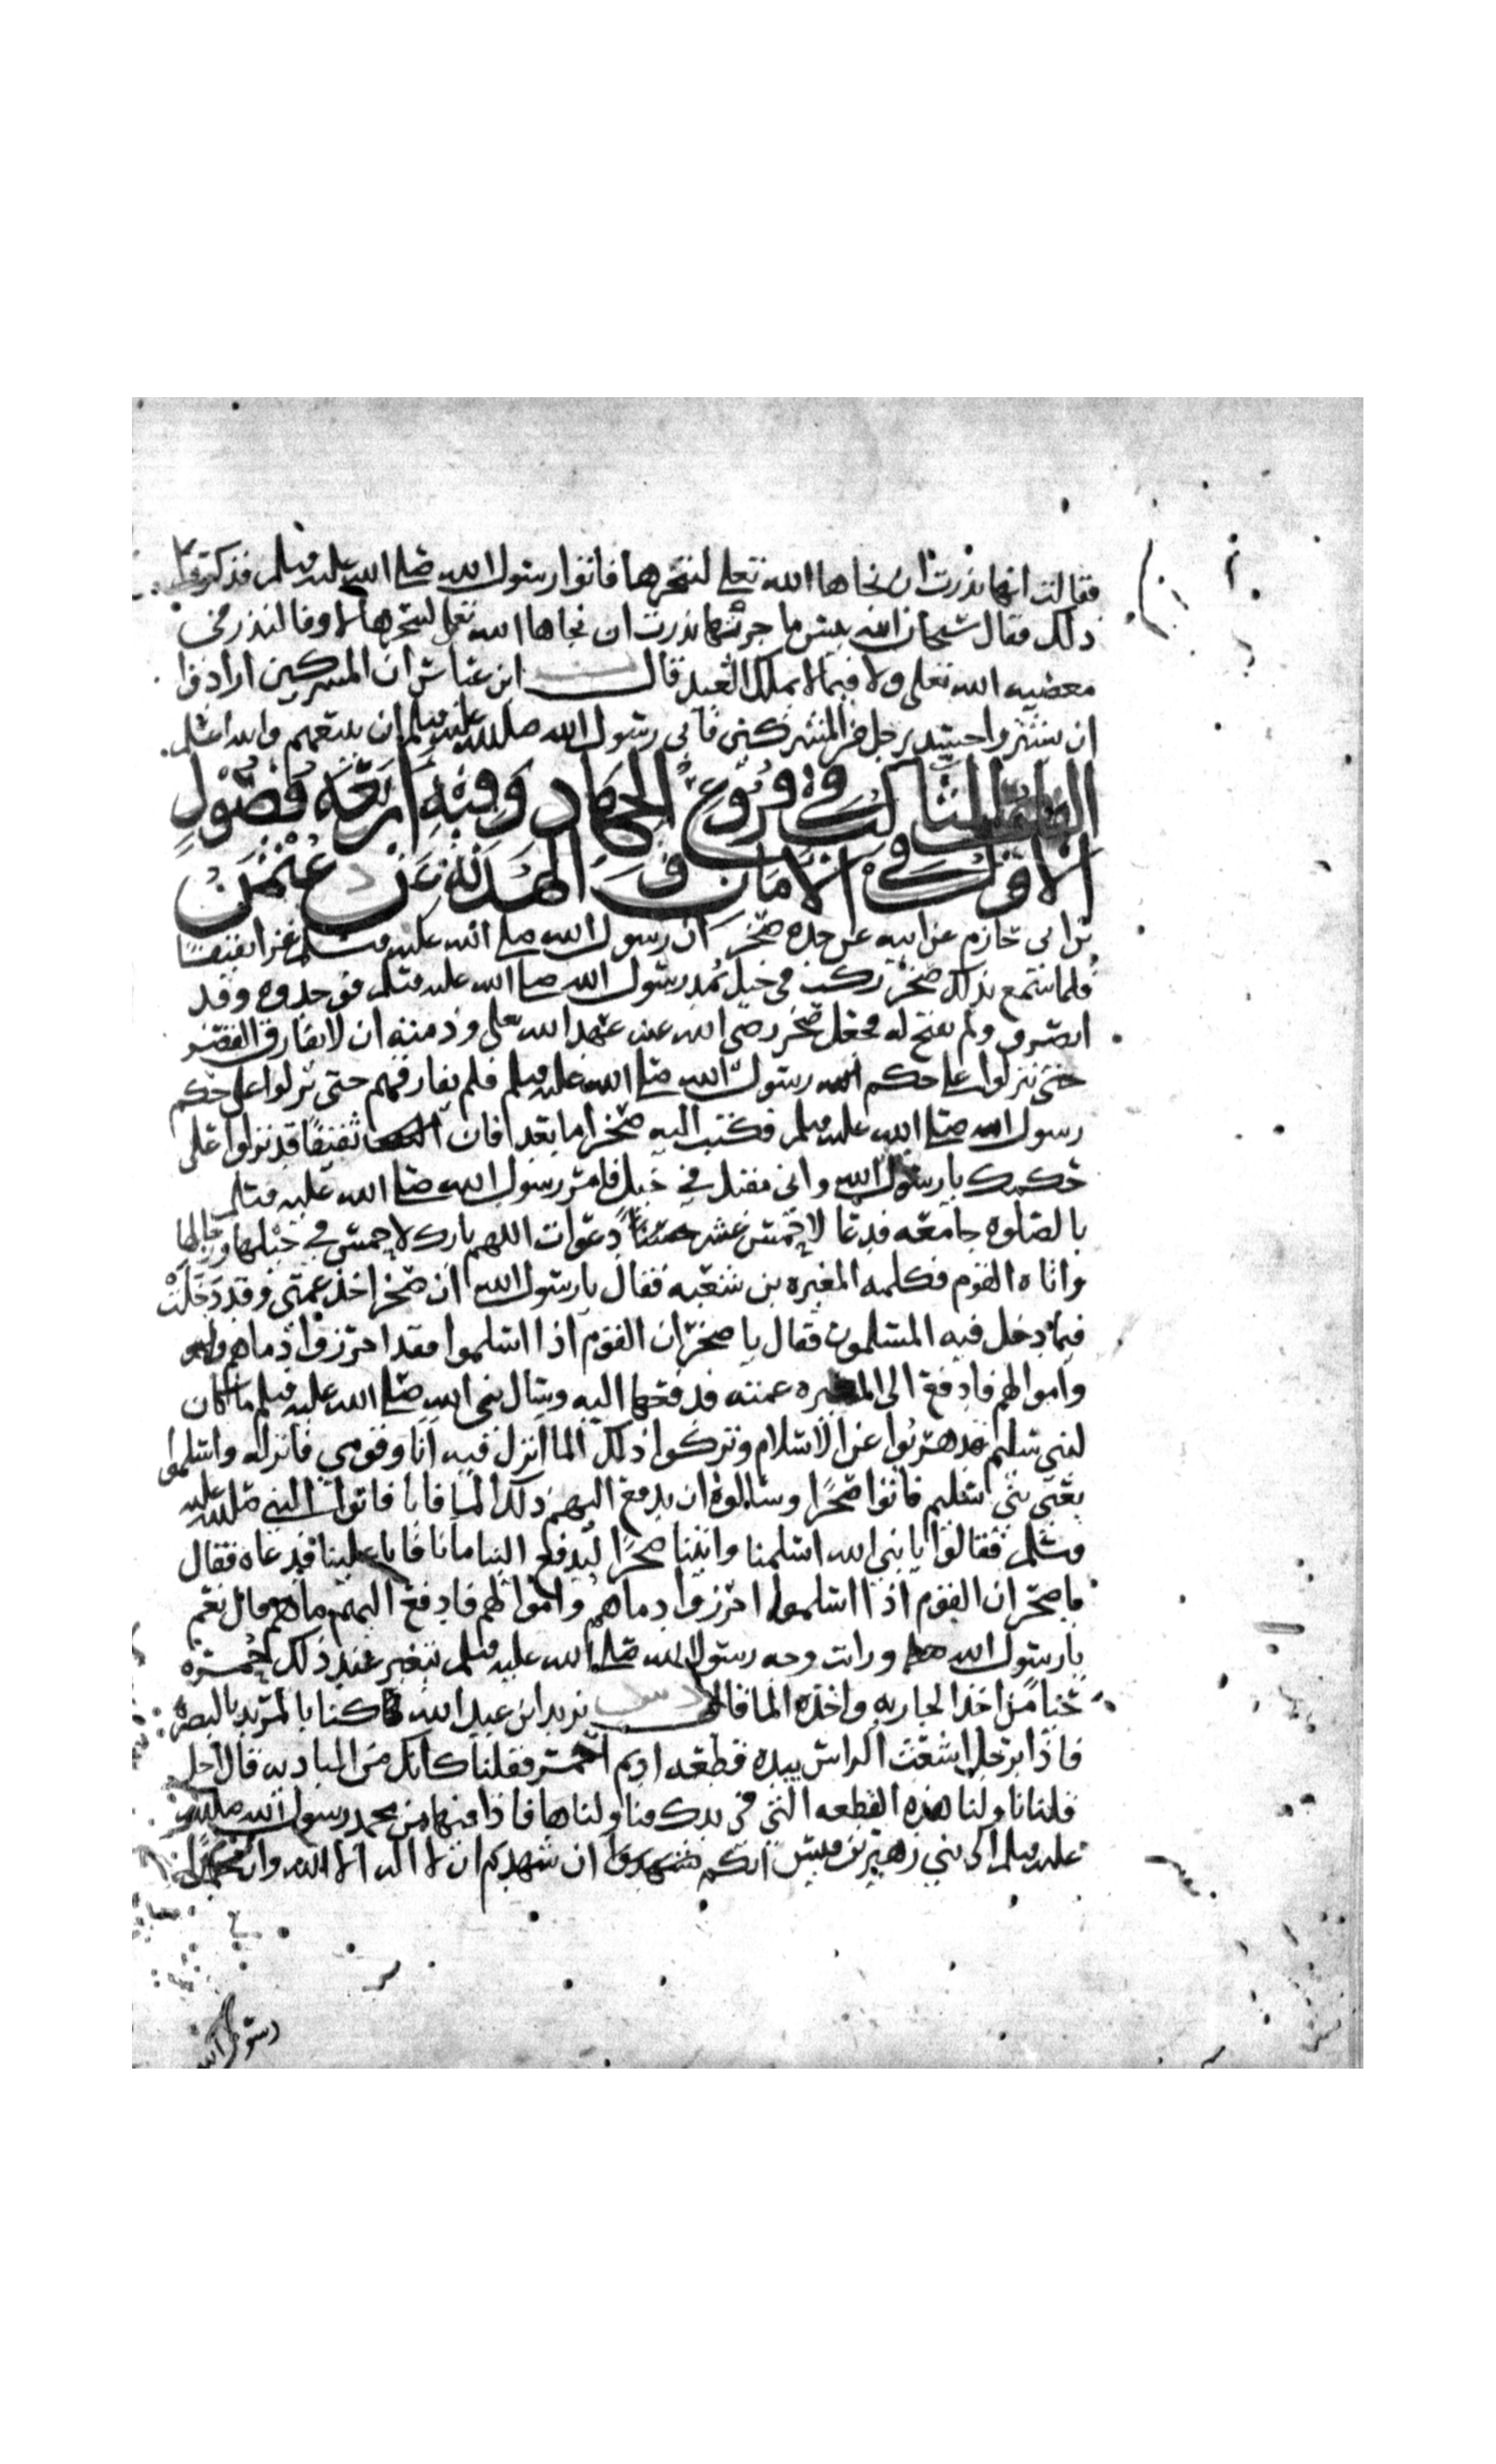 فقالت انها نذرت ان نجاها الله تعلى لتنحرنها فاتوا رسول الله صلى الله عليه وسلم فذكروا
ذلك فقال سبحان الله بيس ما جزتها نذرت ان نجاها الله تعلى لتنحرنها لا وفا لنذر في
معصيه الله تعلى ولا فيما لا يملك العبد قال ابن عباس ان المشركين ارادوا
ان يشتروا جسد رجل من المشركين فابى رسول الله صلى الله عليه وسلم ان يبيعهم والله اعلم
الباب الثالث في فروع الجهاد وفيه اربعه فصول
الاول في الامان والهدنه عن عثمن
بن ابي حازم عن ابيه عن جده صخر ان رسول الله صلى الله عليه وسلم غزا ثقيفا
فلما سمع بذلك صخر ركب في خيل يمد رسول الله صلى الله عليه وسلم فوجدوه وقد
انصرف ولم يفتح له فجعل صخر رضي الله عنه عهد الله تعلى وذمته ان لا يفارق القصر
حتى ينزلوا على حكم رسول الله صلى الله عليه وسلم فلم يفارقهم حتى نزلوا على حكم
رسول الله صلى الله عليه وسلم فكتب اليه صخر اما بعد فان ثقيفا قد نزلوا على
حكمك يا رسول الله واني مقبل في خيل فامر رسول الله صلى الله عليه وسلم
بالصلوه جامعه فدعا لاحمس عشر دعوات اللهم بارك لاحمس في خيلها ورجالها
واتاه القوم فكلمه المغيره بن شعبه فقال يا رسول الله ان صخرا اخذ عمتي وقد دخلت
فيما دخل فيه المسلمون فقال يا صخر ان القوم اذا اسلموا فقد احرزوا دماهم
واموالهم فادفع الى المغيره عمته فدفعها اليه وسال نبي الله صلى الله عليه وسلم ما كان
لبني سليم قد هربوا عن الاسلام وتركوا ذلك الما انزل فيه انا وقومي فانزله واسلموا
يعني بني سليم فاتوا صخرا وسالوه ان يدفع اليهم ذلك الما فابا فاتوا النبي صلى الله عليه
وسلم فقالوا يا نبي الله اسلمنا واتينا صخرا ليدفع الينا مانا فابا علينا فدعاه فقال
يا صخر ان القوم اذا اسلموا احرزوا دماهم واموالهم فادفع اليهم ماهم قال نعم
يا رسول الله ورايت وجه رسول الله صلى الله عليه وسلم يتغير عند ذلك حمره
حيا من اخذ الجاريه واخذه الما قال يزيد ابن عبد الله كنا بالمربد بالبصره
فاذا برجل اشعث الراس بيده قطعه اديم احمر فقلنا كانك من الباديه قال اجل
قلنا ناولنا هذه القطعه التي في يدك فناولناها فاذا فيها من محمد رسول الله صلى الله
عليه وسلم الى بني زهير بن قيش انكم ان شهدتم ان لا اله الا الله وان محمدا
رسول الله